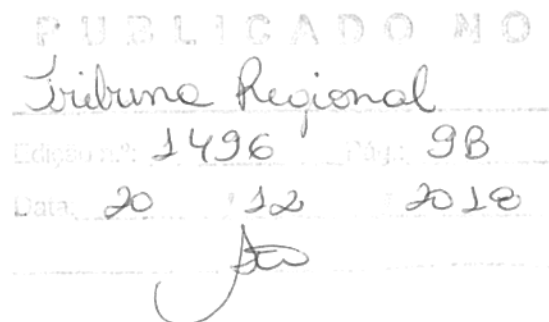 PUBLICADO NO
Tribuna Regional
Edição n.º: 1496 Pág.: 9B
Data, 20 / 12 / 2018